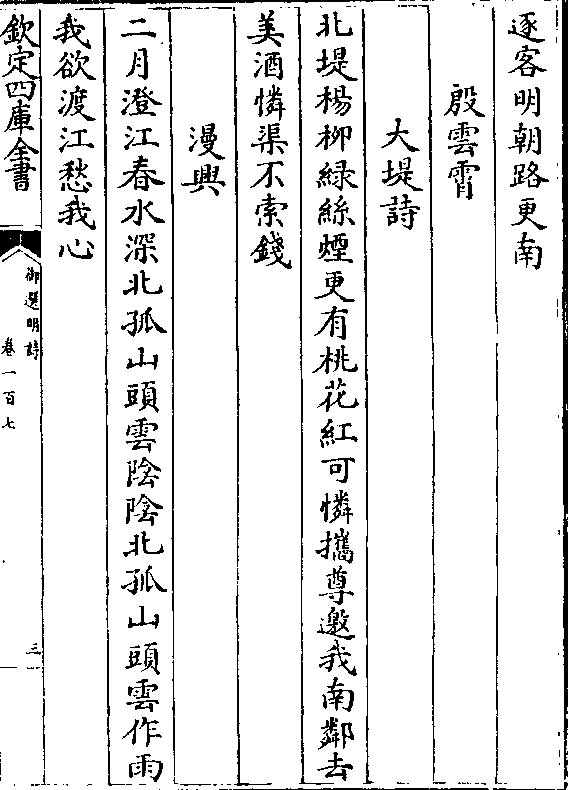 逐客明朝路更南
殷雲霄
大堤詩
北堤楊柳緑絲煙更有桃花紅可憐攜尊邀我南鄰去
美酒憐渠不索錢
漫興
二月澄江春水深北孤山頭雲陰陰北孤山頭雲作雨
我欲渡江愁我心
欽定四庫全書
御選明詩
卷一百七
三